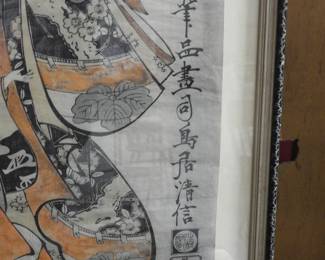 筆品畫司鳥居清信